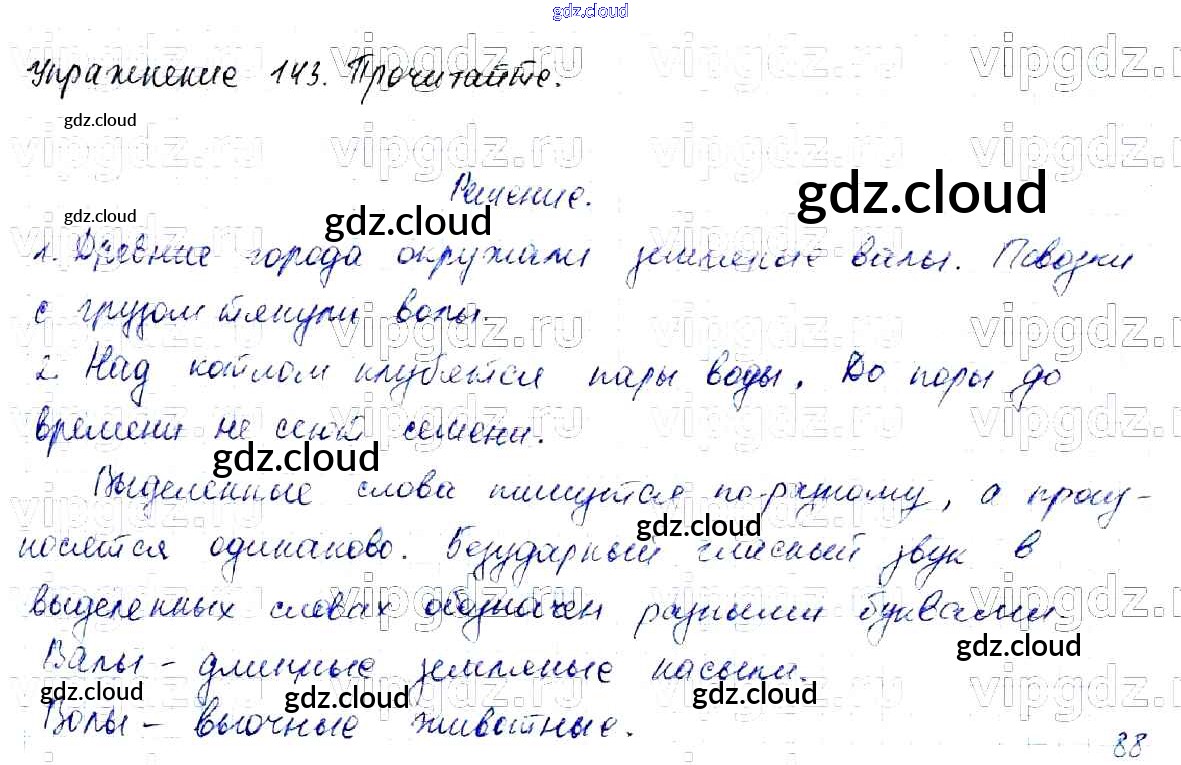 gdz.cloud
Упражнение 143. Прочитайте.
gdz.cloud
vipgdz.ru vipgdz.ru vipgdz.ru vipgdz.
Решение.
gdz.cloud
gdz.cloud
gdz.cloud
1. Древние города окружали земляные валы. Повозки
с грузом тянули волы.
2. Над котлом клубятся пары воды. До поры до
времени не сеют семени.
gdz.cloud
Выделенные слова пишутся по-разному, а произ-
gdz.cloud
носятся одинаково. Безударный гласный звук в
выделенных словах обозначен разными буквами.
gdz.cloud
Валы - длинные земляные насыпи.
gdz.cloud gdz.cloud gdz.cloud
Волы - вьючные животные.
88